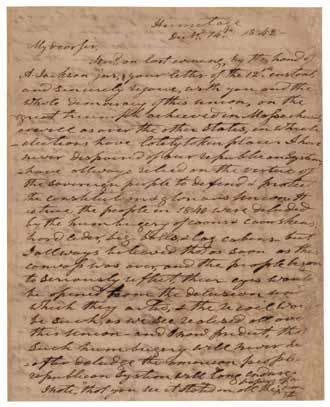 Hermitage
Decbr 14th 1842
My dear Sir,
on last evening, by the hand of
A. Jackson Junr, your letter of the 12th instant
and sincerely rejoice, with you and the
whole democracy of this union, on the
great triumph achieved in Massachusetts
as well as over the other States, in which
elections have lately taken place. I have
never despaired of our republican system,
have allways relied on the virtue of
the sovereign people to defend & protect
the constitution & glorious union. At
the people in 1840 were deluded
by the humbugery of coons & coonskins,
hard cider, & Log cabins but
I allways believed that so soon as the
canvass was over and the people began
to seriously reflect their eyes would
be opened from the delusion under
which they acted, & the result would
be such as we see realised all over
this union and I now predict that
such humbugery will never be
after delude the american people
republican system will long endure
I note, that you see it stated in all the